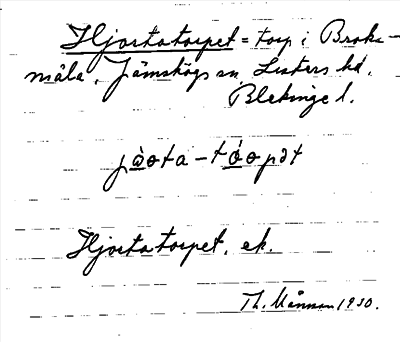 Hjortatorpet = torp i Broka-
måla, Jämshögs sn Listers hd,
Blekinge l.
jòɵta - tóɵpət
Hjortatorpet, ek.
Th. Månsson 1930.